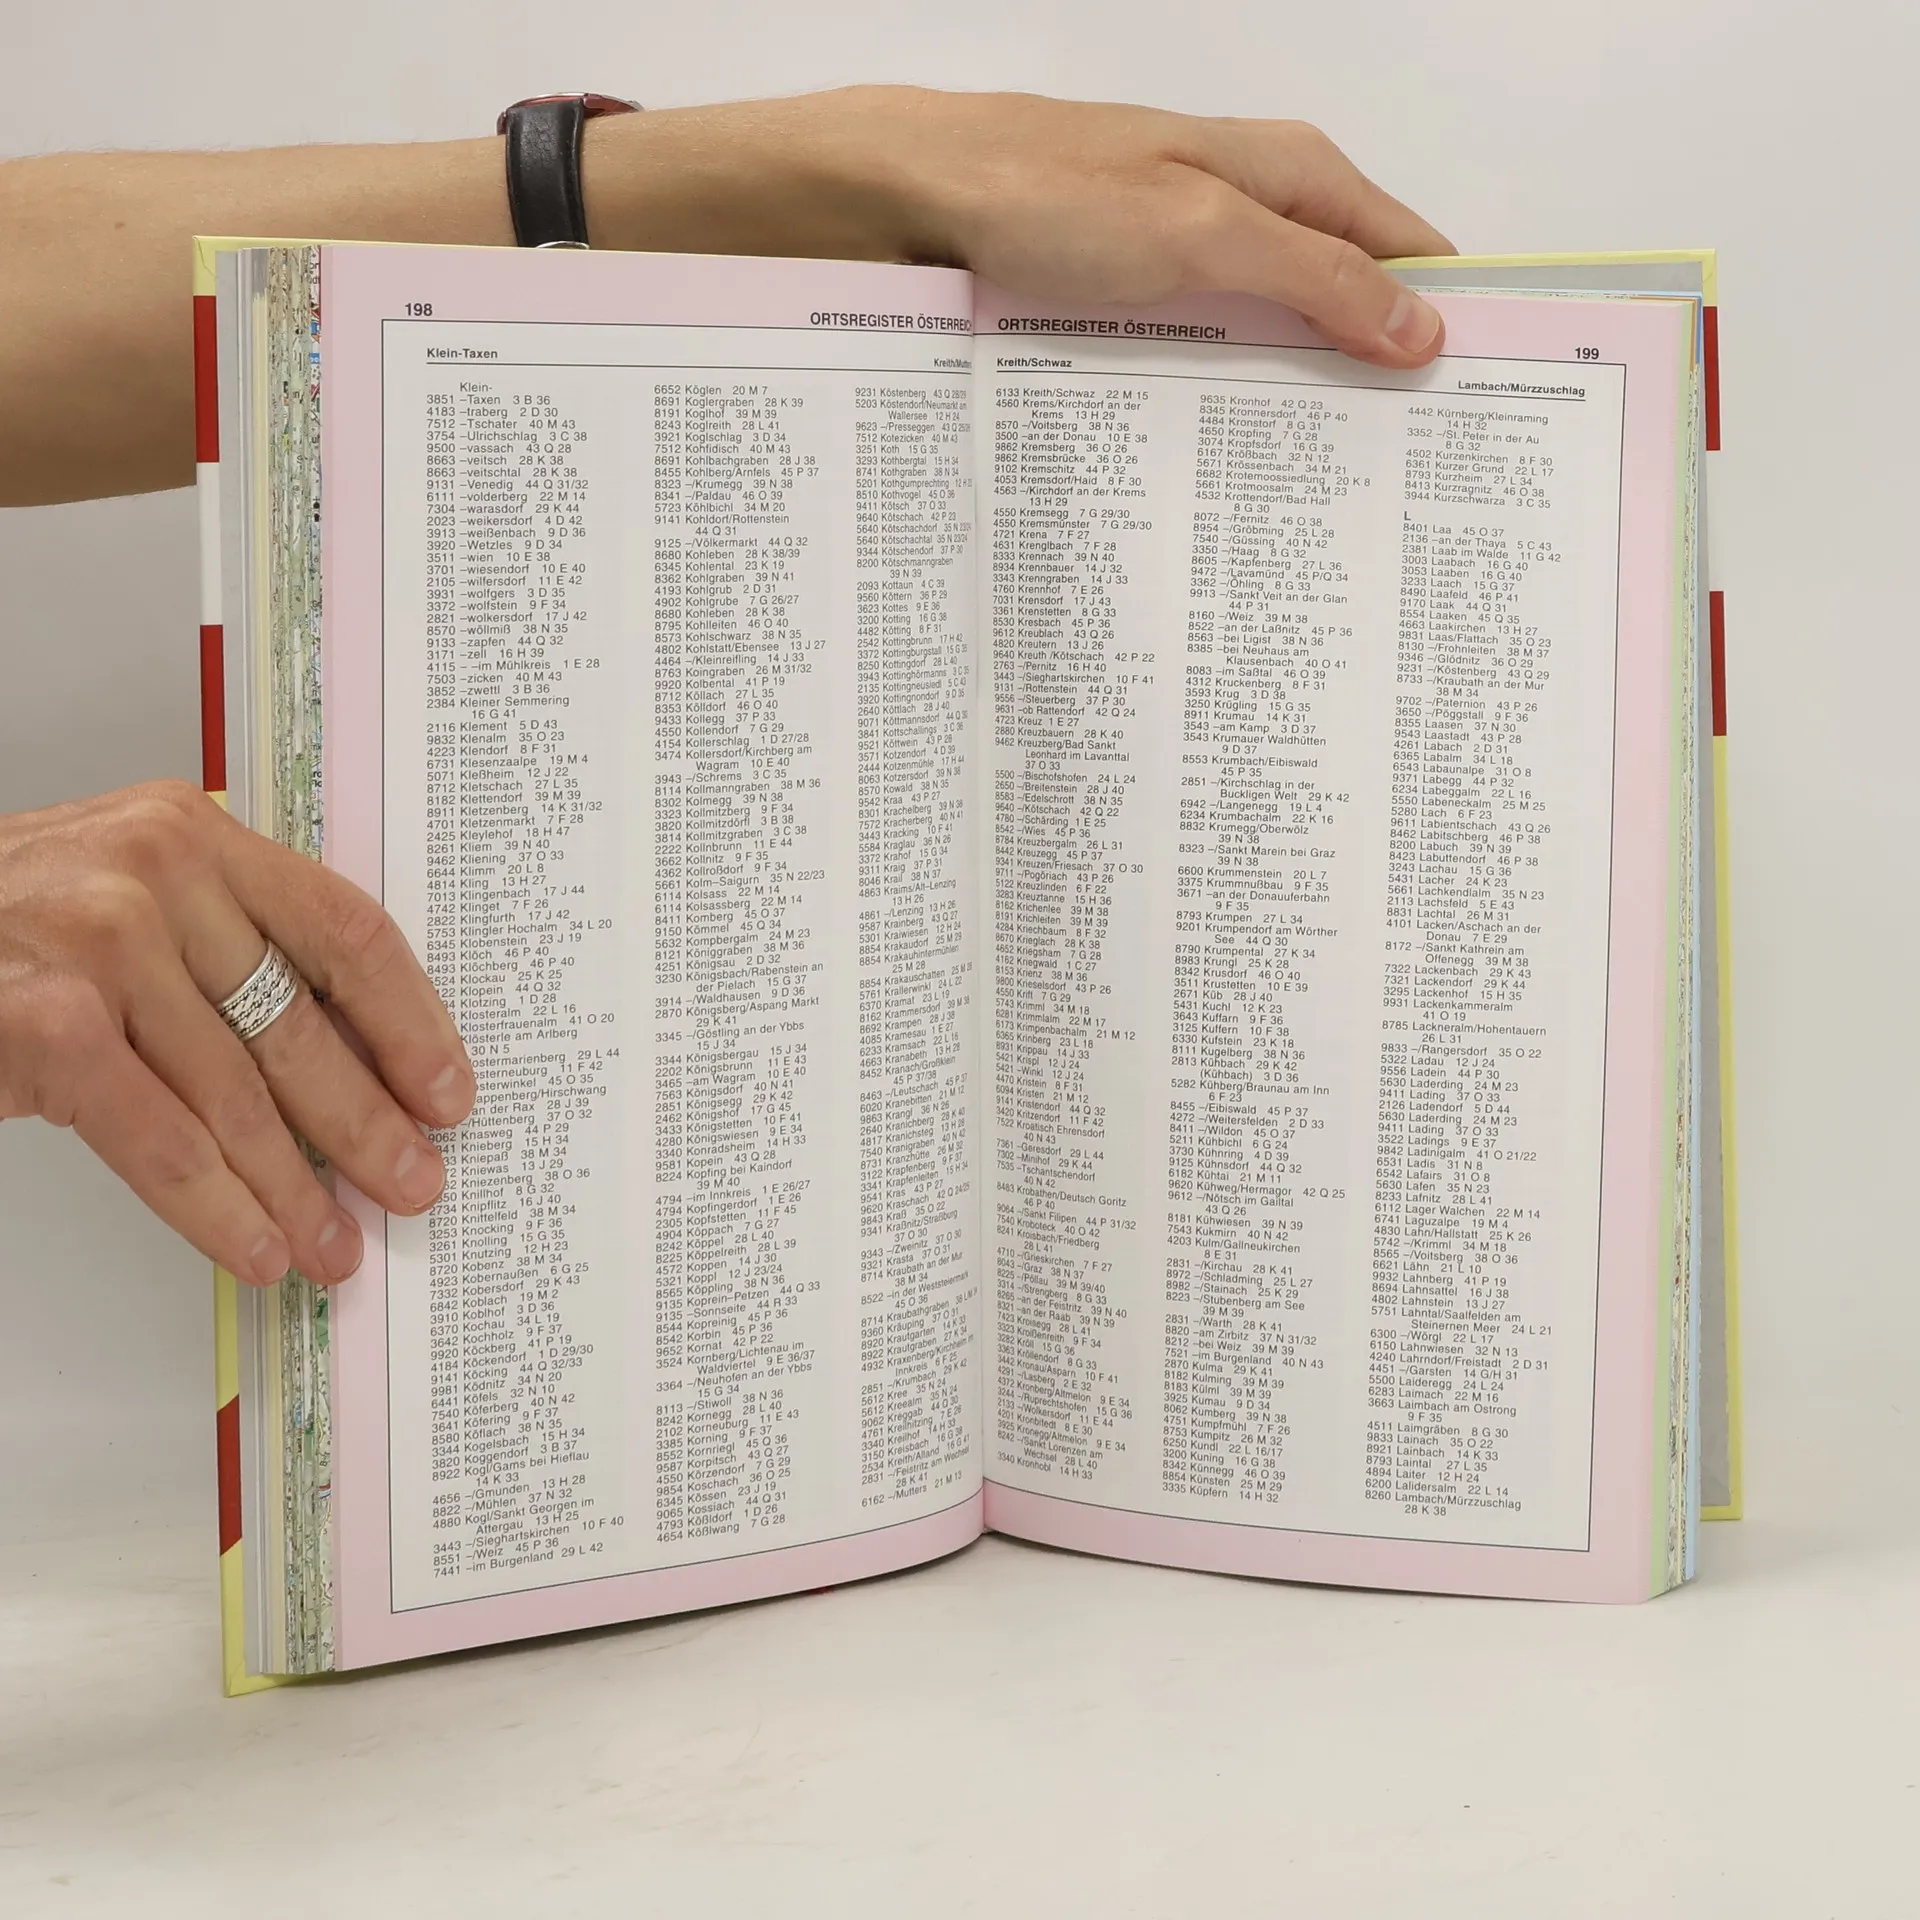 198
ORTSREGISTER ÖSTERREIC
Klein-Taxen
Kreith/Mutters
Klein-
3851 –Taxen 3 B 36
4183 –traberg 2 D 30
7512 –Tschater 40 M 43
3754 –Ulrichschlag 3 C 38
9500 –vassach 43 Q 28
8663 –veitsch 28 K 38
8663 –veitschtal 28 K 38
9131 –Venedig 44 Q 31/32
6111 –volderberg 22 M 14
7304 –warasdorf 29 K 44
2023 –weikersdorf 4 D 42
3913 –weißenbach 9 D 36
3920 –Wetzles 9 D 34
3511 –wien 10 E 38
3701 –wiesendorf 10 E 40
2105 –wilfersdorf 11 E 42
3931 –wolfgers 3 D 35
3372 –wolfstein 9 F 34
2821 –wolkersdorf 17 J 42
8570 –wöllmiß 38 N 35
9133 –zapfen 44 Q 32
3171 –zell 16 H 39
4115 – –im Mühlkreis 1 E 28
7503 –zicken 40 M 43
3852 –zwettl 3 B 36
2384 Kleiner Semmering
16 G 41
2116 Klement 5 D 43
9832 Klenalm 35 O 23
4223 Klendorf 8 F 31
6731 Klesenzaalpe 19 M 4
5071 Kleßheim 12 J 22
8712 Kletschach 27 L 35
8182 Klettendorf 39 M 39
8911 Kletzenberg 14 K 31/32
4701 Kletzenmarkt 7 F 28
2425 Kleylehof 18 H 47
8261 Kliem 39 N 40
9462 Kliening 37 O 33
6644 Klimm 20 L 8
4814 Kling 13 H 27
7013 Klingenbach 17 J 44
4742 Klinget 7 F 26
2822 Klingfurth 17 J 42
5753 Klingler Hochalm 34 L 20
6345 Klobenstein 23 J 19
8493 Klöch 46 P 40
8493 Klöchberg 46 P 40
Klockau 25 K 25
Klopein 44 Q 32
Klotzing 1 D 28
Klosteralm 22 L 16
Klosterfrauenalm 41 O 20
Klösterle am Arlberg
30 N 5
29 L 44
11 F 42
45 O 35
an der Rax 28 J 39
–/Hüttenberg 37 O 32
9062 Knasweg 44 P 29
Knieberg 15 H 34
Kniepaß 38 M 34
Kniewas 13 J 29
Kniezenberg 38 O 36
Knillhof 8 G 32
2734 Knipflitz 16 J 40
8720 Knittelfeld 38 M 34
3253 Knocking 9 F 36
3261 Knolling 15 G 35
5301 Knutzing 12 H 23
8720 Kobenz 38 M 34
4923 Kobernaußen 6 G 25
7332 Kobersdorf 29 K 43
6842 Koblach 19 M 2
3910 Koblhof 3 D 36
6370 Kochau 34 L 19
3642 Kochholz 9 F 37
9920 Köckberg 41 P 19
4184 Köckendorf 1 D 29/30
9141 Köcking 44 Q 32/33
9981 Ködnitz 34 N 20
6441 Köfels 32 N 10
7540 Köferberg 40 N 42
3641 Köfering 9 F 37
8580 Köflach 38 N 35
3344 Kogelsbach 15 H 34
3820 Koggendorf 3 B 37
8922 Kogl/Gams bei Hieflau
14 K 33
4656 –/Gmunden 13 H 28
8822 –/Mühlen 37 N 32
4880 Kogl/Sankt Georgen im
Attergau 13 H 25
3443 –/Sieghartskirchen 10 F 40
8551 –/Weiz 45 P 36
7441 –im Burgenland 29 L 42
6652 Köglen 20 M 7
8691 Koglergraben 28 K 39
8191 Koglhof 39 M 39
8243 Koglreith 28 L 41
3921 Koglschlag 3 D 34
7512 Kohfidisch 40 M 43
8691 Kohlbachgraben 28 J 38
8455 Kohlberg/Arnfels 45 P 37
8323 –/Krumegg 39 N 38
8341 –/Paldau 46 O 39
5723 Köhlbichl 34 M 20
9141 Kohldorf/Rottenstein
44 Q 31
9125 –/Völkermarkt 44 Q 32
8680 Kohleben 28 K 38/39
6345 Kohlental 23 K 19
8362 Kohlgraben 39 N 41
4193 Kohlgrub 2 D 31
4902 Kohlgrube 7 G 26/27
8680 Kohleben 28 K 38
8795 Kohlleiten 46 O 40
8573 Kohlschwarz 38 N 35
4802 Kohlstatt/Ebensee 13 J 27
4464 –/Kleinreifling 14 J 33
8763 Koingraben 26 M 31/32
9920 Kolbental 41 P 19
8712 Köllach 27 L 35
8353 Kölldorf 46 O 40
9433 Kollegg 37 P 33
4550 Kollendorf 7 G 29
4154 Kollerschlag 1 D 27/28
3474 Kollersdorf/Kirchberg am
Wagram 10 E 40
3943 –/Schrems 3 C 35
8114 Kollmanngraben 38 M 36
8302 Kolmegg 39 N 38
3323 Kollmitzberg 9 F 34
3820 Kollmitzdörfl 3 B 38
3814 Kollmitzgraben 3 C 38
2222 Kollnbrunn 11 E 44
3662 Kollnitz 9 F 35
4362 Kollroßdorf 9 F 34
5661 Kolm–Saigurn 35 N 22/23
6114 Kolsass 22 M 14
6114 Kolsassberg 22 M 14
8411 Komberg 45 O 37
9150 Kömmel 45 Q 34
5632 Kompbergalm 24 M 23
8121 Königgraben 38 M 36
4251 Königsau 2 D 32
3230 Königsbach/Rabenstein an
der Pielach 15 G 37
3914 –/Waldhausen 9 D 36
2870 Königsberg/Aspang Markt
29 K 41
3345 –/Göstling an der Ybbs
15 J 34
3344 Königsbergau 15 J 34
2202 Königsbrunn 11 E 43
3465 –am Wagram 10 E 40
7563 Königsdorf 40 N 41
2851 Königsegg 29 K 42
2462 Königshof 17 G 45
3433 Königstetten 10 F 41
4280 Königswiesen 9 E 34
3340 Konradsheim 14 H 33
9581 Kopein 43 Q 28
8224 Kopfing bei Kaindorf
39 M 40
4794 –im Innkreis 1 E 26/27
4794 Kopfingerdorf 1 E 26
2305 Kopfstetten 11 F 45
4904 Köppach 7 G 27
8242 Köppel 28 L 40
8225 Köppelreith 28 L 39
4572 Koppen 14 J 30
5321 Koppl 12 J 23/24
8565 Köppling 38 N 36
9135 Koprein–Petzen 44 Q 33
9135 –Sonnseite 44 R 33
8544 Kopreinig 45 P 36
8542 Korbin 45 P 36
9652 Kornat 42 P 22
3524 Kornberg/Lichtenau im
Waldviertel 9 E 36/37
3364 –/Neuhofen an der Ybbs
15 G 34
8113 –/Stiwoll 38 N 36
8242 Kornegg 28 L 40
2102 Korneuburg 11 E 43
3385 Korning 9 F 37
8552 Kornriegl 45 Q 36
9587 Korpitsch 43 Q 27
4550 Körzendorf 7 G 29
9854 Koschach 36 O 25
6345 Kössen 23 J 19
9065 Kossiach 44 Q 31
4793 Kößldorf 1 D 26
4654 Kößlwang 7 G 28
9231 Köstenberg 43 Q 28/29
5203 Köstendorf/Neumarkt am
Wallersee 12 H 24
9623 –/Presseggen 43 Q 25/26
7512 Kotezicken 40 M 43
3251 Koth 15 G 35
3293 Kothbergtal 15 H 34
8741 Kothgraben 38 N 34
5201 Kothgumprechting 12 H
8510 Kothvogel 45 O 36
9411 Kötsch 37 O 33
9640 Kötschach 42 P 23
5640 Kötschachdorf 35 N 23/24
5640 Kötschachtal 35 N 23/24
9344 Kötschendorf 37 P 30
8200 Kötschmanngraben
39 N 39
2093 Kottaun 4 C 39
9560 Köttern 36 P 29
3623 Kottes 9 E 36
3200 Kotting 16 G 38
4482 Kötting 8 F 31
2542 Kottingbrunn 17 H 42
3372 Kottingburgstall 15 G 35
8250 Kottingdorf 28 L 40
3943 Kottinghörmanns 3 C 35
2135 Kottingneusiedl 5 C 43
3920 Kottingnondorf 9 D 35
2640 Köttlach 28 J 40
9071 Köttmannsdorf 44 Q 30
3841 Kottschallings 3 C 36
9521 Köttwein 43 P 28
3571 Kotzendorf 4 D 39
2444 Kotzenmühle 17 H 44
8063 Kotzersdorf 39 N 38
8570 Kowald 38 N 35
9542 Kraa 43 P 27
8301 Krachelberg 39 N 38
7572 Kracherberg 40 N 41
3443 Kracking 10 F 41
5584 Kraglau 36 N 26
3372 Krahof 15 G 34
9311 Kraig 37 P 31
8046 Krail 38 N 37
4863 Kraims/Alt–Lenzing
13 H 26
4861 –/Lenzing 13 H 26
9587 Krainberg 43 Q 27
5301 Kraiwiesen 12 H 24
8854 Krakaudorf 25 M 29
8854 Krakauhintermühlen
25 M 28
8854 Krakauschatten 25 M 28
5761 Krallerwinkl 24 L 22
6370 Kramat 23 L 19
8162 Krammersdorf 39 M 38
8692 Krampen 28 J 38
4085 Kramesau 1 E 27
6233 Kramsach 22 L 16
4663 Kranabeth 13 H 28
8452 Kranach/Großklein
45 P 37/38
8463 –/Leutschach 45 P 37
6020 Kranebitten 21 M 12
9863 Krangl 36 N 26
2640 Kranichberg 28 K 40
4817 Kranichsteg 13 H 28
7540 Kranigraben 40 N 42
8731 Kranzhütte 26 M 32
3122 Krapfenberg 9 F 37
3341 Krapfenleiten 15 H 34
9541 Kras 43 P 27
9620 Kraschach 42 Q 24/25
9843 Kraß 35 O 22
9341 Kraßnitz/Straßburg
37 O 30
9343 –/Zweinitz 37 O 30
9321 Krasta 37 O 31
8714 Kraubath an der Mur
38 M 34
8522 –in der Weststeiermark
45 O 36
8714 Kraubathgraben 38 L/M 34
9360 Kräuping 37 O 31
8920 Krautgarten 14 K 33
8922 Krautgraben 27 K 34
4932 Kraxenberg/Kirchheim im
Innkreis 6 F 25
2851 –/Krumbach 29 K 42
5612 Kree 35 N 24
5612 Kreealm 35 N 24
9062 Kreggab 44 Q 30
4761 Kreilnitzing 7 E 26
3340 Kreilhof 14 H 33
3150 Kreisbach 16 G 38
2534 Kreith/Alland 16 G 41
2831 –/Feistritz am Wechsel
28 K 41
6162 –/Mutters 21 M 13
ORTSREGISTER ÖSTERREICH
199
Kreith/Schwaz
Lambach/Mürzzuschlag
6133 Kreith/Schwaz 22 M 15
4560 Krems/Kirchdorf an der
Krems 13 H 29
8570 –/Voitsberg 38 N 36
3500 –an der Donau 10 E 38
9862 Kremsberg 36 O 26
9862 Kremsbrücke 36 O 26
9102 Kremschitz 44 P 32
4053 Kremsdorf/Haid 8 F 30
4563 –/Kirchdorf an der Krems
13 H 29
4550 Kremsegg 7 G 29/30
4550 Kremsmünster 7 G 29/30
4721 Krena 7 F 27
4631 Krenglbach 7 F 28
8333 Krennach 39 N 40
8934 Krennbauer 14 J 32
3343 Krenngraben 14 J 33
4760 Krennhof 7 E 26
7031 Krensdorf 17 J 43
3361 Krenstetten 8 G 33
8530 Kresbach 45 P 36
9612 Kreublach 43 Q 26
4820 Kreutern 13 J 26
9640 Kreuth /Kötschach 42 P 22
2763 –/Pernitz 16 H 40
3443 –/Sieghartskirchen 10 F 41
9131 –/Rottenstein 44 Q 31
9556 –/Steuerberg 37 P 30
9631 –ob Rattendorf 42 Q 24
4723 Kreuz 1 E 27
2880 Kreuzbauern 28 K 40
9462 Kreuzberg/Bad Sankt
Leonhard im Lavanttal
37 O 33
5500 –/Bischofshofen 24 L 24
2650 –/Breitenstein 28 J 40
8583 –/Edelschrott 38 N 35
9640 –/Kötschach 42 Q 22
4780 –/Schärding 1 E 25
8542 –/Wies 45 P 36
8784 Kreuzbergalm 26 L 31
8442 Kreuzegg 45 P 37
9341 Kreuzen/Friesach 37 O 30
9711 –/Pogöriach 43 P 26
5122 Kreuzlinden 6 F 22
3283 Kreuztanne 15 H 36
8162 Krichenlee 39 M 38
8191 Krichleifen 39 M 39
4284 Kriechbaum 8 F 32
8670 Krieglach 28 K 38
4652 Kriegsham 7 G 28
4162 Kriegwald 1 C 27
8153 Krienz 38 M 36
9800 Krieselsdorf 43 P 26
4550 Krift 7 G 29
5743 Krimml 34 M 18
6281 Krimmlalm 22 M 17
6173 Krimpenbachalm 21 M 12
6365 Krinberg 23 L 18
8931 Krippau 14 J 33
5421 Krispl 12 J 24
5421 –Winkl 12 J 24
4470 Kristein 8 F 31
6094 Kristen 21 M 12
9141 Kristendorf 44 Q 32
3420 Kritzendorf 11 F 42
7522 Kroatisch Ehrensdorf
40 N 43
7361 –Geresdorf 29 L 44
7302 –Minihof 29 K 44
7535 –Tschantschendorf
40 N 42
8483 Krobathen/Deutsch Goritz
46 P 40
9064 –/Sankt Filipen 44 P 31/32
7540 Kroboteck 40 O 42
8241 Kroisbach/Friedberg
28 L 41
4710 –/Grieskirchen 7 F 27
8043 –/Graz 38 N 37
8225 –/Pöllau 39 M 39/40
3314 –/Strengberg 8 G 33
8265 –an der Feistritz 39 N 40
8321 –an der Raab 39 N 39
7423 Kroisegg 28 L 41
3323 Kroißenreith 9 F 34
3282 Kröll 15 G 36
3363 Kröllendorf 8 G 33
3442 Kronau/Asparn 10 F 41
4291 –/Lasberg 2 E 32
4372 Kronberg/Altmelon 9 E 34
3244 –/Ruprechtshofen 15 G 36
2133 –/Wolkersdorf 11 E 44
4201 Kronbitedt 8 E 30
3925 Kronegg/Altmelon 9 E 34
8242 –/Sankt Lorenzen am
Wechsel 28 L 40
3340 Kronhobl 14 H 33
9635 Kronhof 42 Q 23
8345 Kronnersdorf 46 P 40
4484 Kronstorf 8 G 31
4650 Kropfing 7 G 28
3074 Kropfsdorf 16 G 39
6167 Krößbach 32 N 12
5671 Krössenbach 34 M 21
6682 Krotemoossiedlung 20 K 8
5661 Krotmoosalm 24 M 23
4532 Krottendorf/Bad Hall
8 G 30
8072 –/Fernitz 46 O 38
8954 –/Gröbming 25 L 28
7540 –/Güssing 40 N 42
3350 –/Haag 8 G 32
8605 –/Kapfenberg 27 L 36
9472 –/Lavamünd 45 P/Q 34
3362 –/Öhling 8 G 33
9913 –/Sankt Veit an der Glan
44 P 31
8160 –/Weiz 39 M 38
8522 –an der Laßnitz 45 P 36
8563 –bei Ligist 38 N 36
8385 –bei Neuhaus am
Klausenbach 40 O 41
8083 –im Saßtal 46 O 39
4312 Kruckenberg 8 F 31
3593 Krug 3 D 38
3250 Krügling 15 G 35
8911 Krumau 14 K 31
3543 –am Kamp 3 D 37
3543 Krumauer Waldhütten
9 D 37
8553 Krumbach/Eibiswald
45 P 35
2851 –/Kirchschlag in der
Buckligen Welt 29 K 42
6942 –/Langenegg 19 L 4
6234 Krumbachalm 22 K 16
8832 Krumegg/Oberwölz
39 N 38
8323 –/Sankt Marein bei Graz
39 N 38
6600 Krummenstein 20 L 7
3375 Krummnußbau 9 F 35
3671 –an der Donauuferbahn
9 F 35
8793 Krumpen 27 L 34
9201 Krumpendorf am Wörther
See 44 Q 30
8790 Krumpental 27 K 34
8983 Krungl 25 K 28
8342 Krusdorf 46 O 40
3511 Krustetten 10 E 39
2671 Küb 28 J 40
5431 Kuchl 12 K 23
3643 Kuffarn 9 F 36
3125 Kuffern 10 F 38
6330 Kufstein 23 K 18
8111 Kugelberg 38 N 36
2813 Kühbach 29 K 42
(Kühbach) 3 D 36
5282 Kühberg/Braunau am Inn
6 F 23
8455 –/Eibiswald 45 P 37
4272 –/Weitersfelden 2 D 33
8411 –/Wildon 45 O 37
5211 Kühbichl 6 G 24
3730 Kühnring 4 D 39
9125 Kühnsdorf 44 Q 32
6182 Kühtai 21 M 11
9620 Kühweg/Hermagor 42 Q 25
9612 –/Nötsch im Gailtal
43 Q 26
8181 Kühwiesen 39 N 39
7543 Kukmirn 40 N 42
4203 Kulm/Gallneukirchen
8 E 31
2831 –/Kirchau 28 K 41
8972 –/Schladming 25 L 27
8982 –/Stainach 25 K 29
8223 –/Stubenberg am See
39 M 39
2831 –/Warth 28 K 41
8820 –am Zirbitz 37 N 31/32
8212 –bei Weiz 39 M 39
7521 –im Burgenland 40 N 43
2870 Kulma 29 K 41
8182 Kulming 39 M 39
8183 Külml 39 M 39
3925 Kumau 9 D 34
8062 Kumberg 39 N 38
4751 Kumpfmühl 7 F 26
8753 Kumpitz 26 M 32
6250 Kundl 22 L 16/17
3200 Kuning 16 G 38
8342 Künnegg 46 O 39
8854 Künsten 25 M 29
3335 Küpfern 14 H 32
4442 Kürnberg/Kleinraming
14 H 32
3352 –/St. Peter in der Au
8 G 32
4502 Kurzenkirchen 8 F 30
6361 Kurzer Grund 22 L 17
8793 Kurzheim 27 L 34
8413 Kurzragnitz 46 O 38
3944 Kurzschwarza 3 C 35
L
8401 Laa 45 O 37
2136 –an der Thaya 5 C 43
2381 Laab im Walde 11 G 42
3003 Laabach 16 G 40
3053 Laaben 16 G 40
3233 Laach 15 G 37
8490 Laafeld 46 P 41
9170 Laak 44 Q 31
8554 Laaken 45 Q 35
4663 Laakirchen 13 H 27
9831 Laas/Flattach 35 O 23
8130 –/Frohnleiten 38 M 37
9346 –/Glödnitz 36 O 29
9231 –/Köstenberg 43 Q 29
8733 –/Kraubath an der Mur
38 M 34
9702 –/Paternion 43 P 26
3650 –/Pöggstall 9 F 36
8355 Laasen 37 N 30
9543 Laastadt 43 P 28
4261 Labach 2 D 31
6365 Labalm 34 L 18
6543 Labaunalpe 31 O 8
9371 Labegg 44 P 32
6234 Labeggalm 22 L 16
5550 Labeneckalm 25 M 25
5280 Lach 6 F 23
9611 Labientschach 43 Q 26
8462 Labitschberg 46 P 38
8200 Labuch 39 N 39
8423 Labuttendorf 46 P 38
3243 Lachau 15 G 36
5431 Lacher 24 K 23
5661 Lachkendlalm 35 N 23
2113 Lachsfeld 5 E 43
8831 Lachtal 26 M 31
4101 Lacken/Aschach an der
Donau 7 E 29
8172 –/Sankt Kathrein am
Offenegg 39 M 38
7322 Lackenbach 29 K 43
7321 Lackendorf 29 K 44
3295 Lackenhof 15 H 35
9931 Lackenkammeralm
41 O 19
8785 Lackneralm/Hohentauern
26 L 31
9833 –/Rangersdorf 35 O 22
5322 Ladau 12 J 24
9556 Ladein 44 P 30
5630 Laderding 24 M 23
9411 Lading 37 O 33
2126 Ladendorf 5 D 44
5630 Laderding 24 M 23
9411 Lading 37 O 33
3522 Ladings 9 E 37
9842 Ladinigalm 41 O 21/22
6531 Ladis 31 N 8
6542 Lafairs 31 O 8
5630 Lafen 35 N 23
8233 Lafnitz 28 L 41
6112 Lager Walchen 22 M 14
6741 Laguzalpe 19 M 4
4830 Lahn/Hallstatt 25 K 26
5742 –/Krimml 34 M 18
8565 –/Voitsberg 38 O 36
6621 Lähn 21 L 10
9932 Lahnberg 41 P 19
8694 Lahnsattel 16 J 38
4802 Lahnstein 13 J 27
5751 Lahntal/Saalfelden am
Steinernen Meer 24 L 21
6300 –/Wörgl 22 L 17
6150 Lahnwiesen 32 N 13
4240 Lahrndorf/Freistadt 2 D 31
4451 –/Garsten 14 G/H 31
5500 Laideregg 24 L 24
6283 Laimach 22 M 16
3663 Laimbach am Ostrong
9 F 35
4511 Laimgräben 8 G 30
9833 Lainach 35 O 22
8921 Lainbach 14 K 33
8793 Laintal 27 L 35
4894 Laiter 12 H 24
6200 Lalidersalm 22 L 14
8260 Lambach/Mürzzuschlag
28 K 38